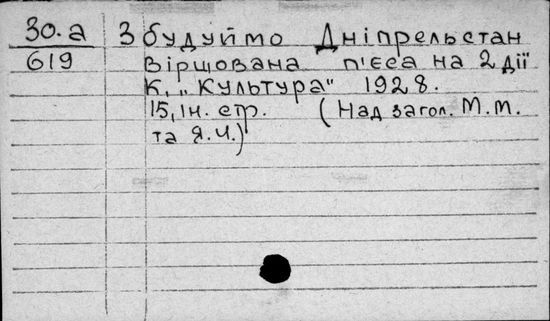 30.а Збудуймо Дніпрельстан
619 Віршована п'єса на 2 дії
К. „Культура" 1928.
15, Ін. стр. (Над загол. М.М.
та Я.Ч.)